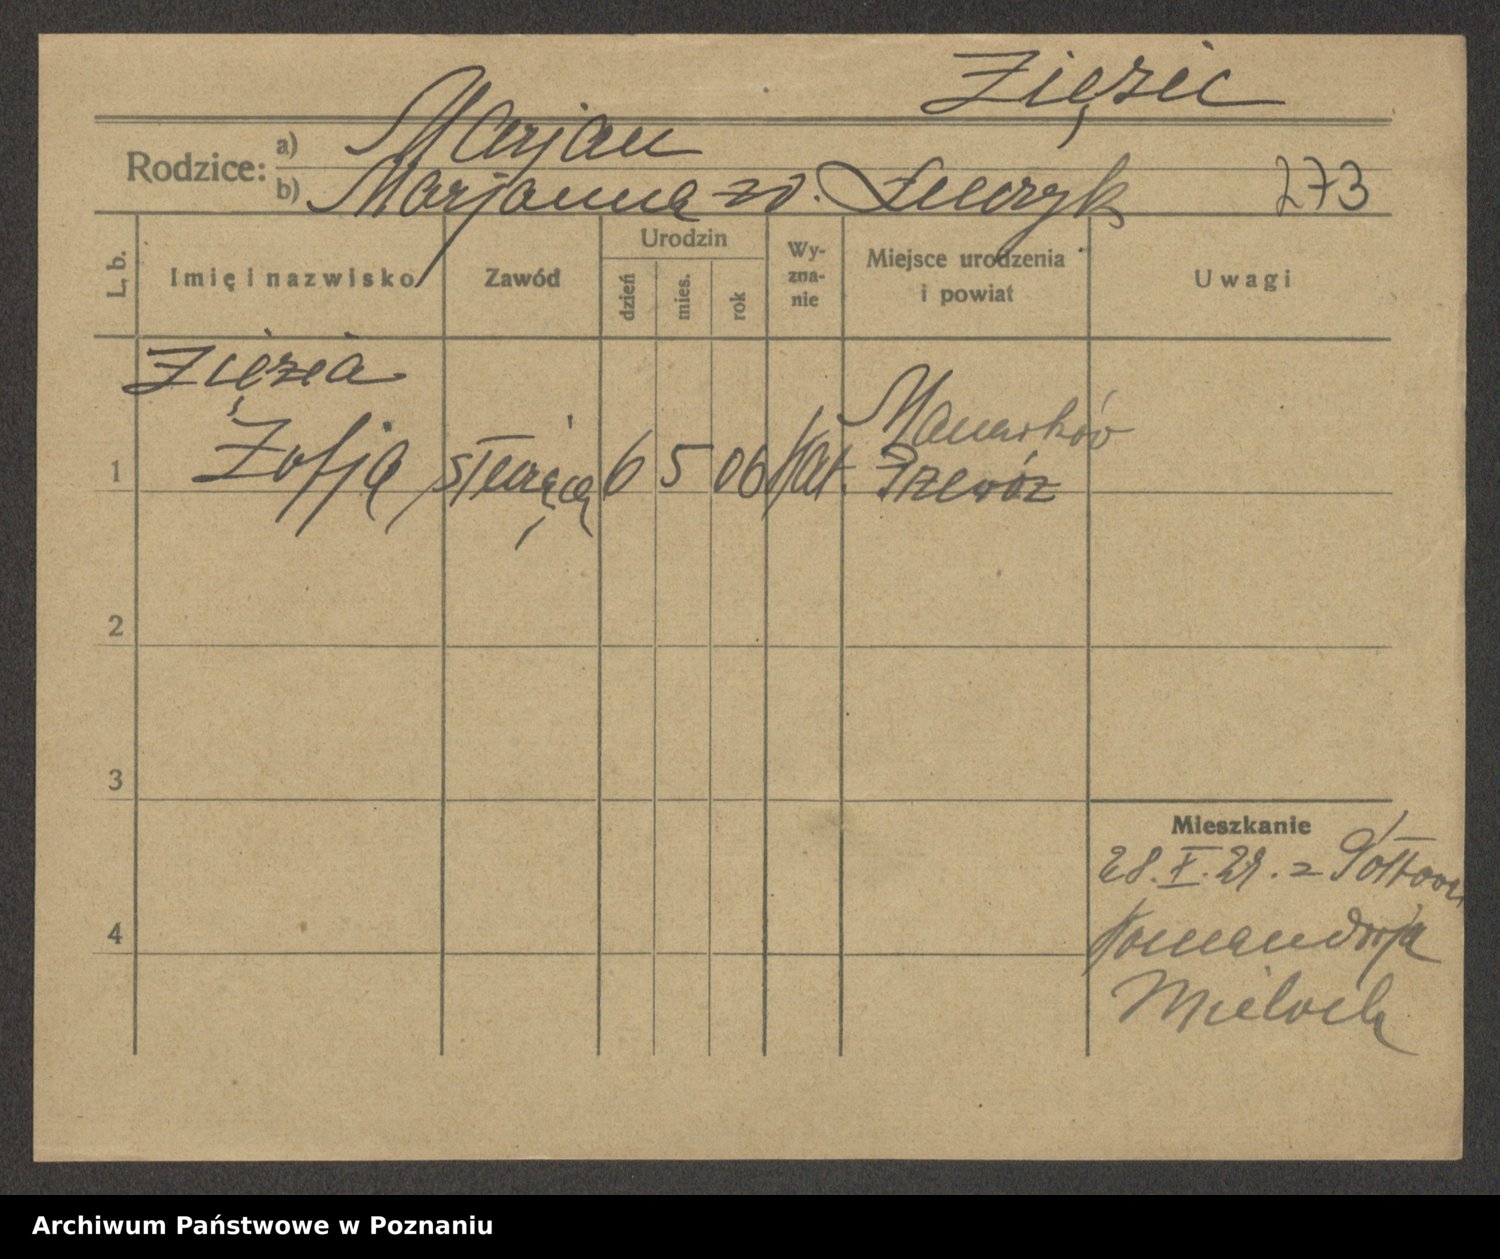 Zięzić
Rodzice: a) Marjan
b) Marjanna zd. 273
L. b. Imię i nazwisko Zawód Urodzin dzień mies. rok Wy-zna-nie Miejsce urodzenia i powiat Uwagi
Zięzia
1 Zofja służąca 6 5 06 kat. Przewóz
2
3
4
Mieszkanie
28. X. 29. z
Komandorja
Mieloch
Archiwum Państwowe w Poznaniu